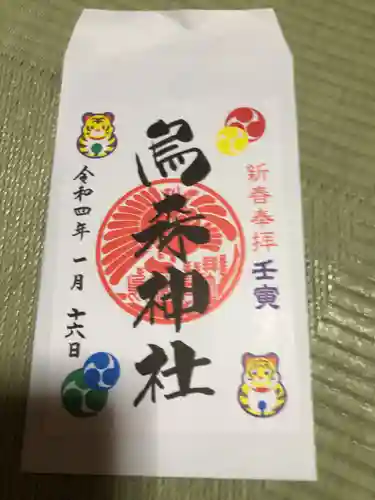 新春奉拝
壬寅
烏森神社
令和四年一月十六日